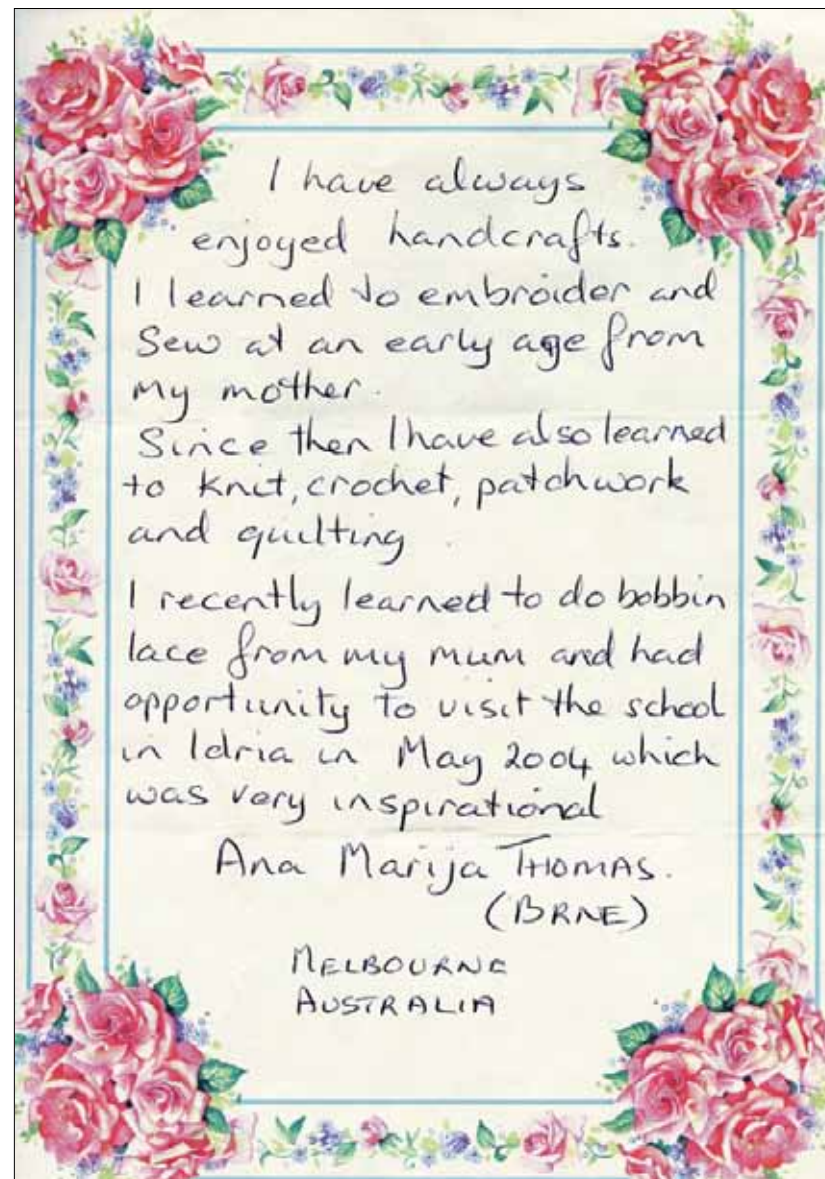 I have always
enjoyed handcrafts.
I learned to embroider and
Sew at an early age from
my mother.
Since then I have also learned
to knit, crochet, patchwork
and quilting.
I recently learned to do bobbin
lace from my mum and had
opportunity to visit the school
in Idria in May 2004 which
was very inspirational
Ana Marija THOMAS.
(BRNE)
MELBOURNE
AUSTRALIA